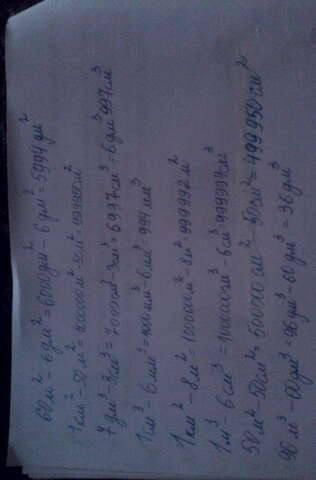 60 м² - 6 дм² = 6000 дм² - 6 дм² = 5994 дм²
1 км² - 50 м² = 1000000 м² - 50 м² = 999950 м²
7 дм³ - 3 см³ = 7000 см³ - 3 см³ = 6997 см³ = 6 дм³ 997 см³
1 см³ - 6 мм³ = 1000 мм³ - 6 мм³ = 994 мм³
1 км² - 8 м² = 1000000 м² - 8 м² = 999992 м²
1 м³ - 6 см³ = 1000000 см³ - 6 см³ = 999994 см³
50 м² - 50 см² = 500000 см² - 50 см² = 499950 см²
96 м³ - 60 дм³ = 96 дм³ - 60 дм³ = 36 дм³